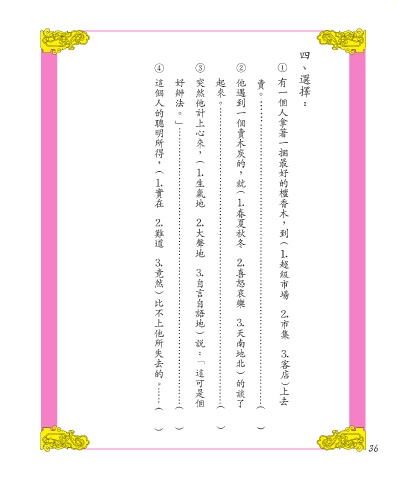 四、選擇：
①有一個人拿著一捆最好的檀香木，到（1.超級市場 2.市集 3.客店）上去
賣。……………………………………………（ ）
②他遇到一個賣木炭的，就（1.春夏秋冬 2.喜怒哀樂 3.天南地北）的談了
起來。……………………………………………（ ）
③突然他計上心來，（1.生氣地 2.大聲地 3.自言自語地）說：「這可是個
好辦法。」……………………………………………（ ）
④這個人的聰明所得，（1.實在 2.難道 3.竟然）比不上他所失去的。……（ ）
36